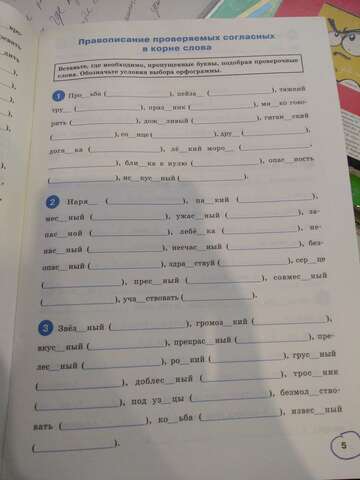 Правописание проверяемых согласных
в корне слова
Вставьте, где необходимо, пропущенные буквы, подобрав проверочные
слова. Обозначьте условия выбора орфограммы.
1 Про__ьба (__________), пейза__ (__________), тяжкий
тру__ (__________), праз__ник (__________), мя__ко гово-
рить (__________), дож__ливый (__________), гиган__ский
(__________), со__нце (__________), дру__ (__________),
дога__ка (__________), лё__кий моро__ (__________,
__________), бли__ка к нулю (__________), опас__ность
(__________), ис__кус__ный (__________).
2 Наря__ (__________), па__кий (__________),
мес__ный (__________), ужас__ный (__________), за-
пас__ной (__________), лебё__ка (__________), не-
нас__ный (__________), несчас__ный (__________), без-
опас__ный (__________), здра__ствуй (__________), сер__це
(__________), прес__ный (__________), совмес__ный
(__________), уча__ствовать (__________).
3 Звёз__ный (__________), громоз__кий (__________),
вкус__ный (__________), прекрас__ный (__________), пре-
лес__ный (__________), ро__кий (__________), грус__ный
(__________), доблес__ный (__________), трос__ник
(__________), под уз__цы (__________), безмол__ство-
вать (__________), ко__ьба (__________), извес__ный
(__________).
5